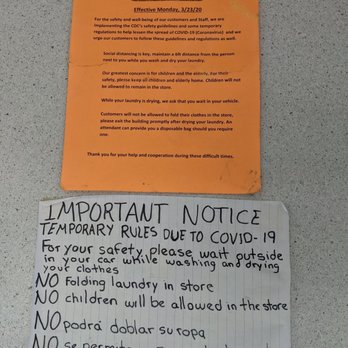 Effective Monday, 3/23/20
For the safety and well-being of our customers and Staff, we are
implementing the CDC's safety guidelines and some temporary
regulations to help lessen the spread of COVID-19 (Coronavirus) and we
urge our customers to follow these guidelines and regulations as well.
Social distancing is key, maintain a 6ft distance from the person
next to you while you wash and dry your laundry.
Our greatest concern is for children and the elderly. For their
safety, please keep all children and elderly home. Children will not
be allowed to remain in the store.
While your laundry is drying, we ask that you wait in your vehicle.
Customers will not be allowed to fold their clothes in the store,
please exit the building promptly after drying your laundry. An
attendant can provide you a disposable bag should you require
one.
Thank you for your help and cooperation during these difficult times.
IMPORTANT NOTICE
TEMPORARY RULES DUE TO COVID-19
For your safety please wait outside
in your car while washing and drying
your clothes
NO Folding laundry in store
NO children will be allowed in the store
NO podrá doblar su ropa
NO se